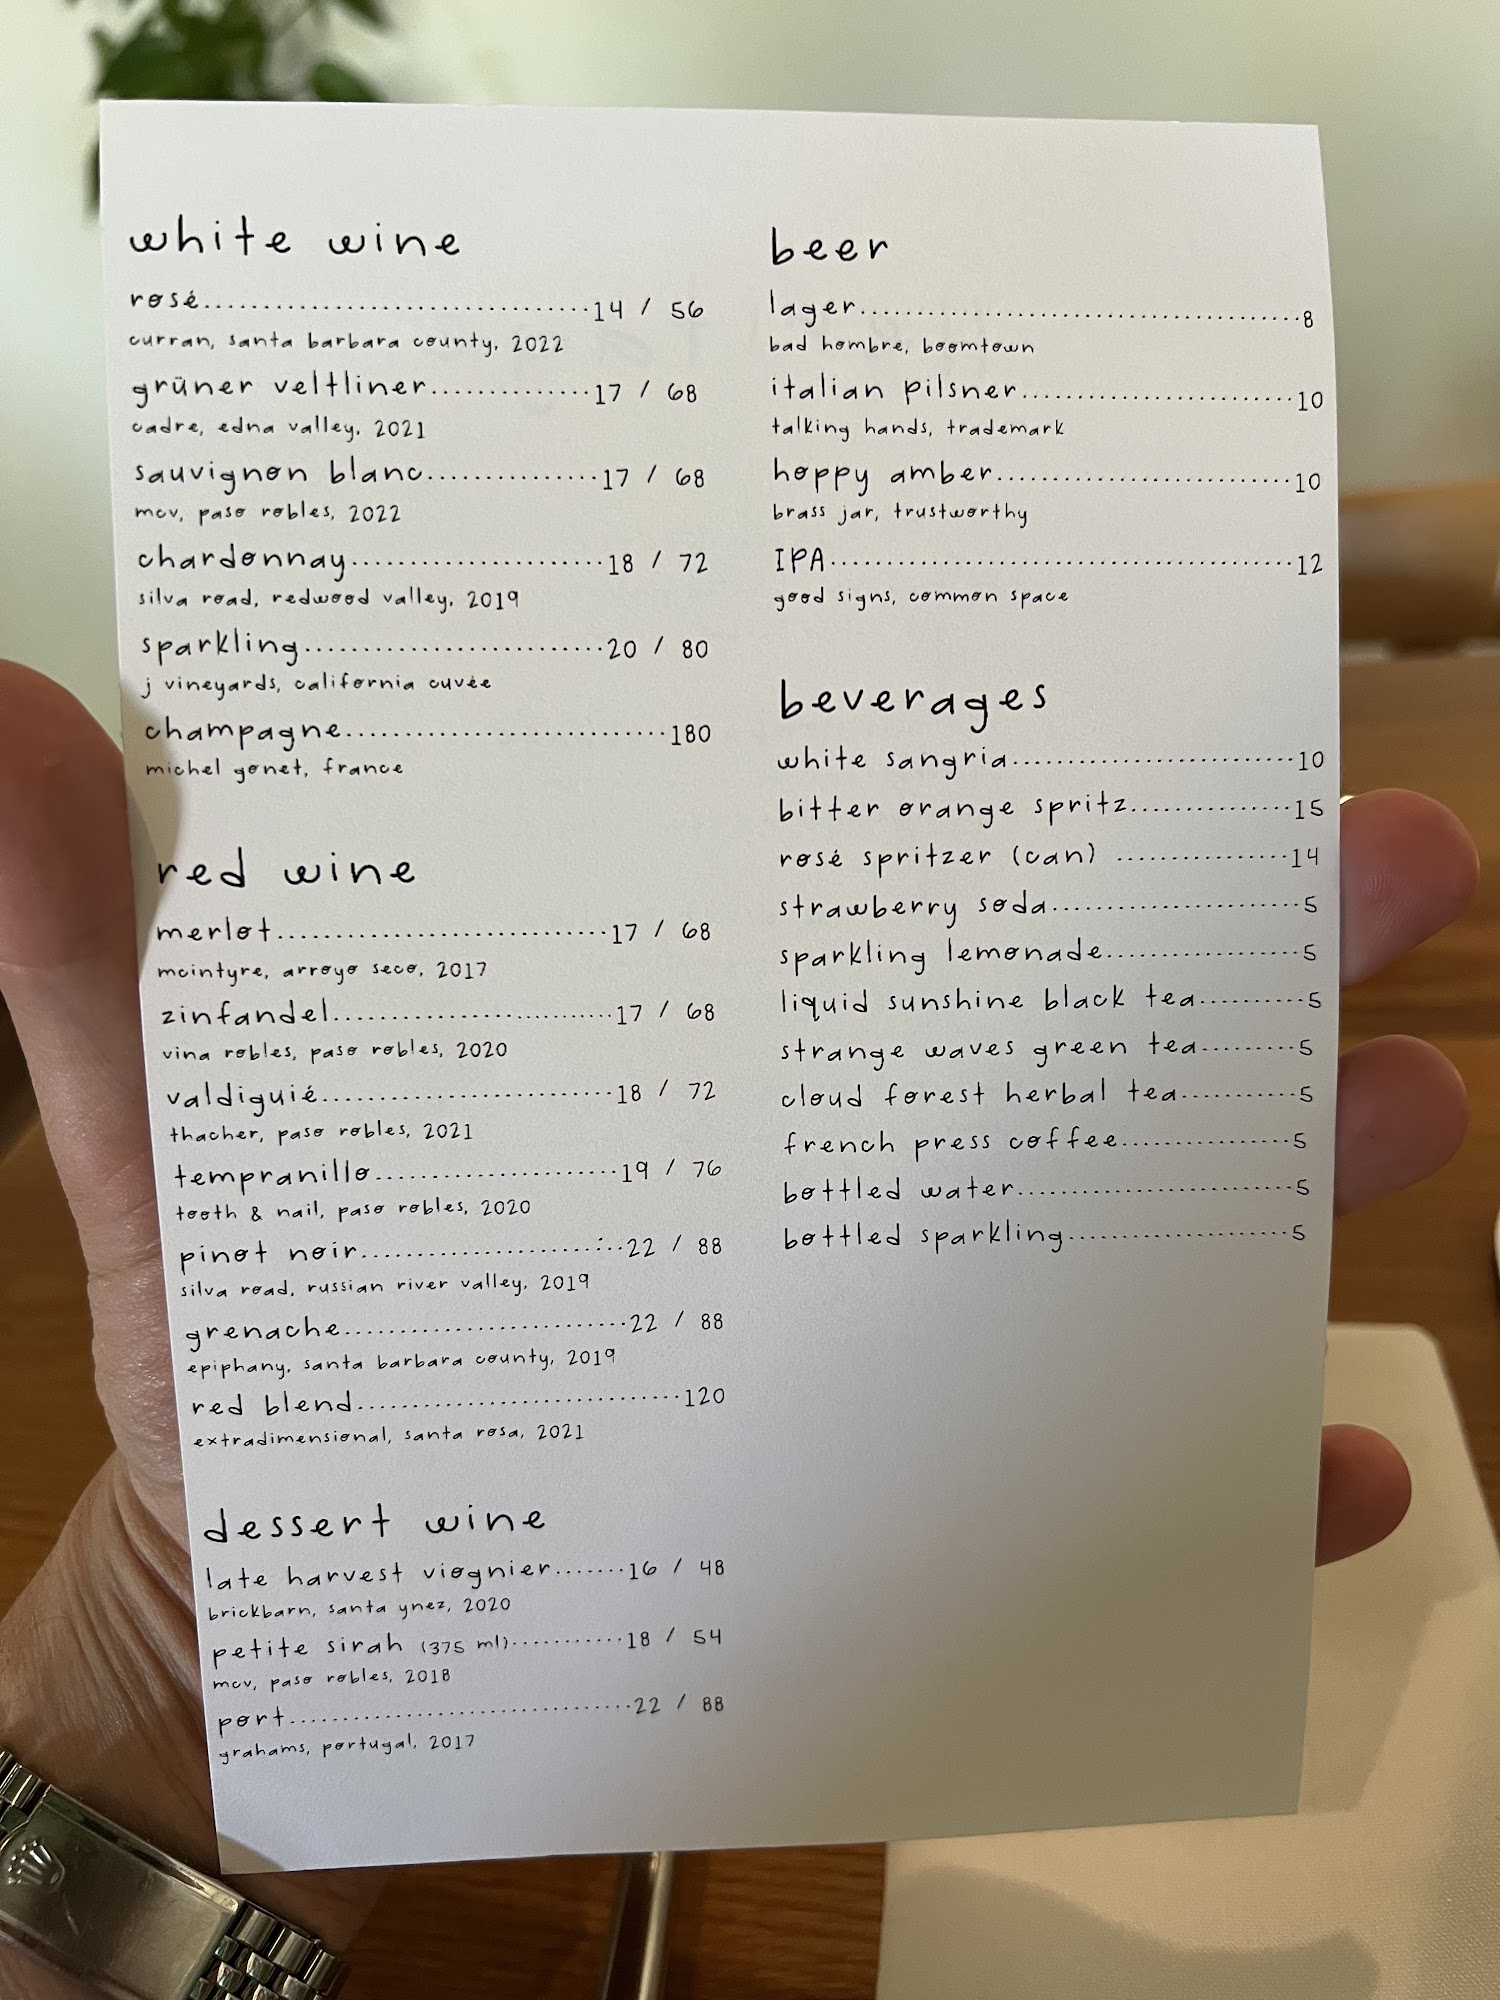 white wine
rosé................................14 / 56
curran, santa barbara county, 2022
grüner veltliner.............17 / 68
cadre, edna valley, 2021
sauvignon blanc..............17 / 68
mcv, paso robles, 2022
chardonnay.....................18 / 72
silva road, redwood valley, 2019
sparkling.........................20 / 80
j vineyards, california cuvée
champagne...........................180
michel gonet, france
red wine
merlot............................17 / 68
mcintyre, arroyo seco, 2017
zinfandel........................17 / 68
vina robles, paso robles, 2020
valdiguié.........................18 / 72
thacher, paso robles, 2021
tempranillo.....................19 / 76
tooth & nail, paso robles, 2020
pinot noir.......................22 / 88
silva road, russian river valley, 2019
grenache........................22 / 88
epiphany, santa barbara county, 2019
red blend...........................120
extradimensional, santa rosa, 2021
dessert wine
late harvest viognier.......16 / 48
brickbarn, santa ynez, 2020
petite sirah (375 ml)...........18 / 54
mcv, paso robles, 2018
port..............................22 / 88
grahams, portugal, 2017
beer
lager.....................................8
bad hombre, boomtown
italian pilsner.......................10
talking hands, trademark
hoppy amber.........................10
brass jar, trustworthy
IPA.......................................12
good signs, common space
beverages
white sangria........................10
bitter orange spritz.............15
rosé spritzer (can) ..............14
strawberry soda.....................5
sparkling lemonade................5
liquid sunshine black tea.........5
strange waves green tea.........5
cloud forest herbal tea..........5
french press coffee...............5
bottled water.......................5
bottled sparkling..................5